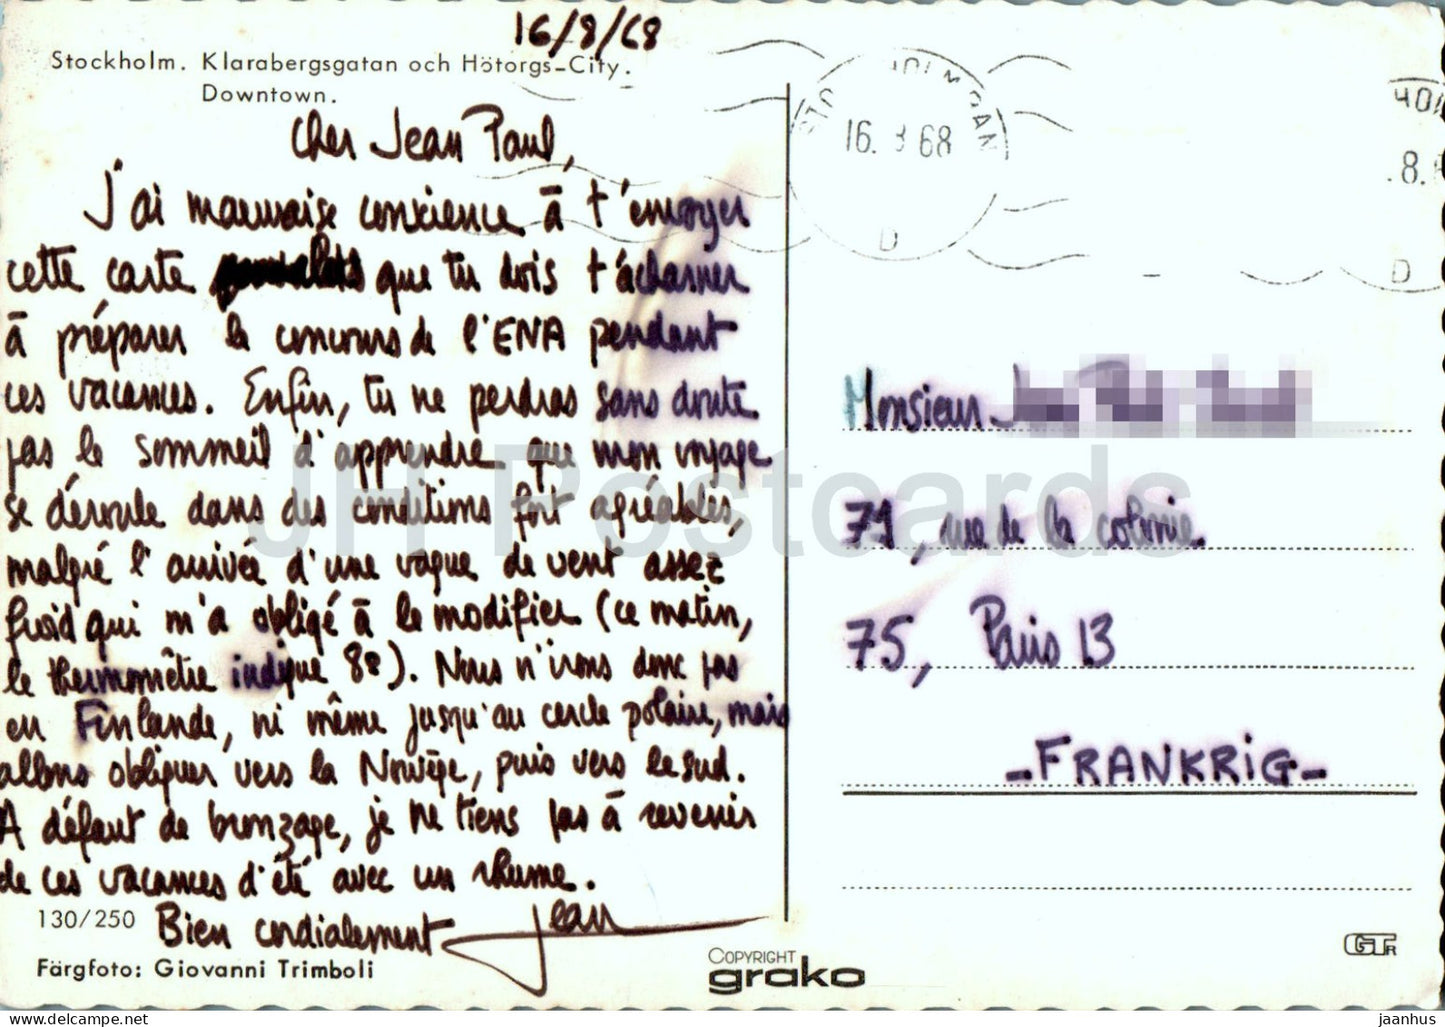 16/8/68
Stockholm. Klarabergsgatan och Hötorgs-City.
Downtown.
Cher Jean Paul,
J'ai mauvaise conscience à t'envoyer
cette carte que tu dois t'acharner
à préparer le concours de l'ENA pendant
ces vacances. Enfin, tu ne perdras sans doute
pas le sommeil d'apprendre que mon voyage
se déroule dans des conditions fort agréables,
malgré l'arrivée d'une vague de vent assez
froid qui m'a obligé à le modifier (ce matin,
le thermomètre indique 8°). Nous n'irons donc pas
en Finlande, ni même jusqu'au cercle polaire, mais
allons obliquer vers la Norvège, puis vers le sud.
A défaut de bronzage, je ne tiens pas à revenir
de ces vacances d'été avec un rhume.
Bien cordialement Jean
130/250
Färgfoto: Giovanni Trimboli
COPYRIGHT
grako
16. 8 68
D
8.
D
Monsieur
71, rue de la colonie.
75, Paris 13
-FRANKRIG-
GTR
JH Postcards
delcampe.net
jaanhus